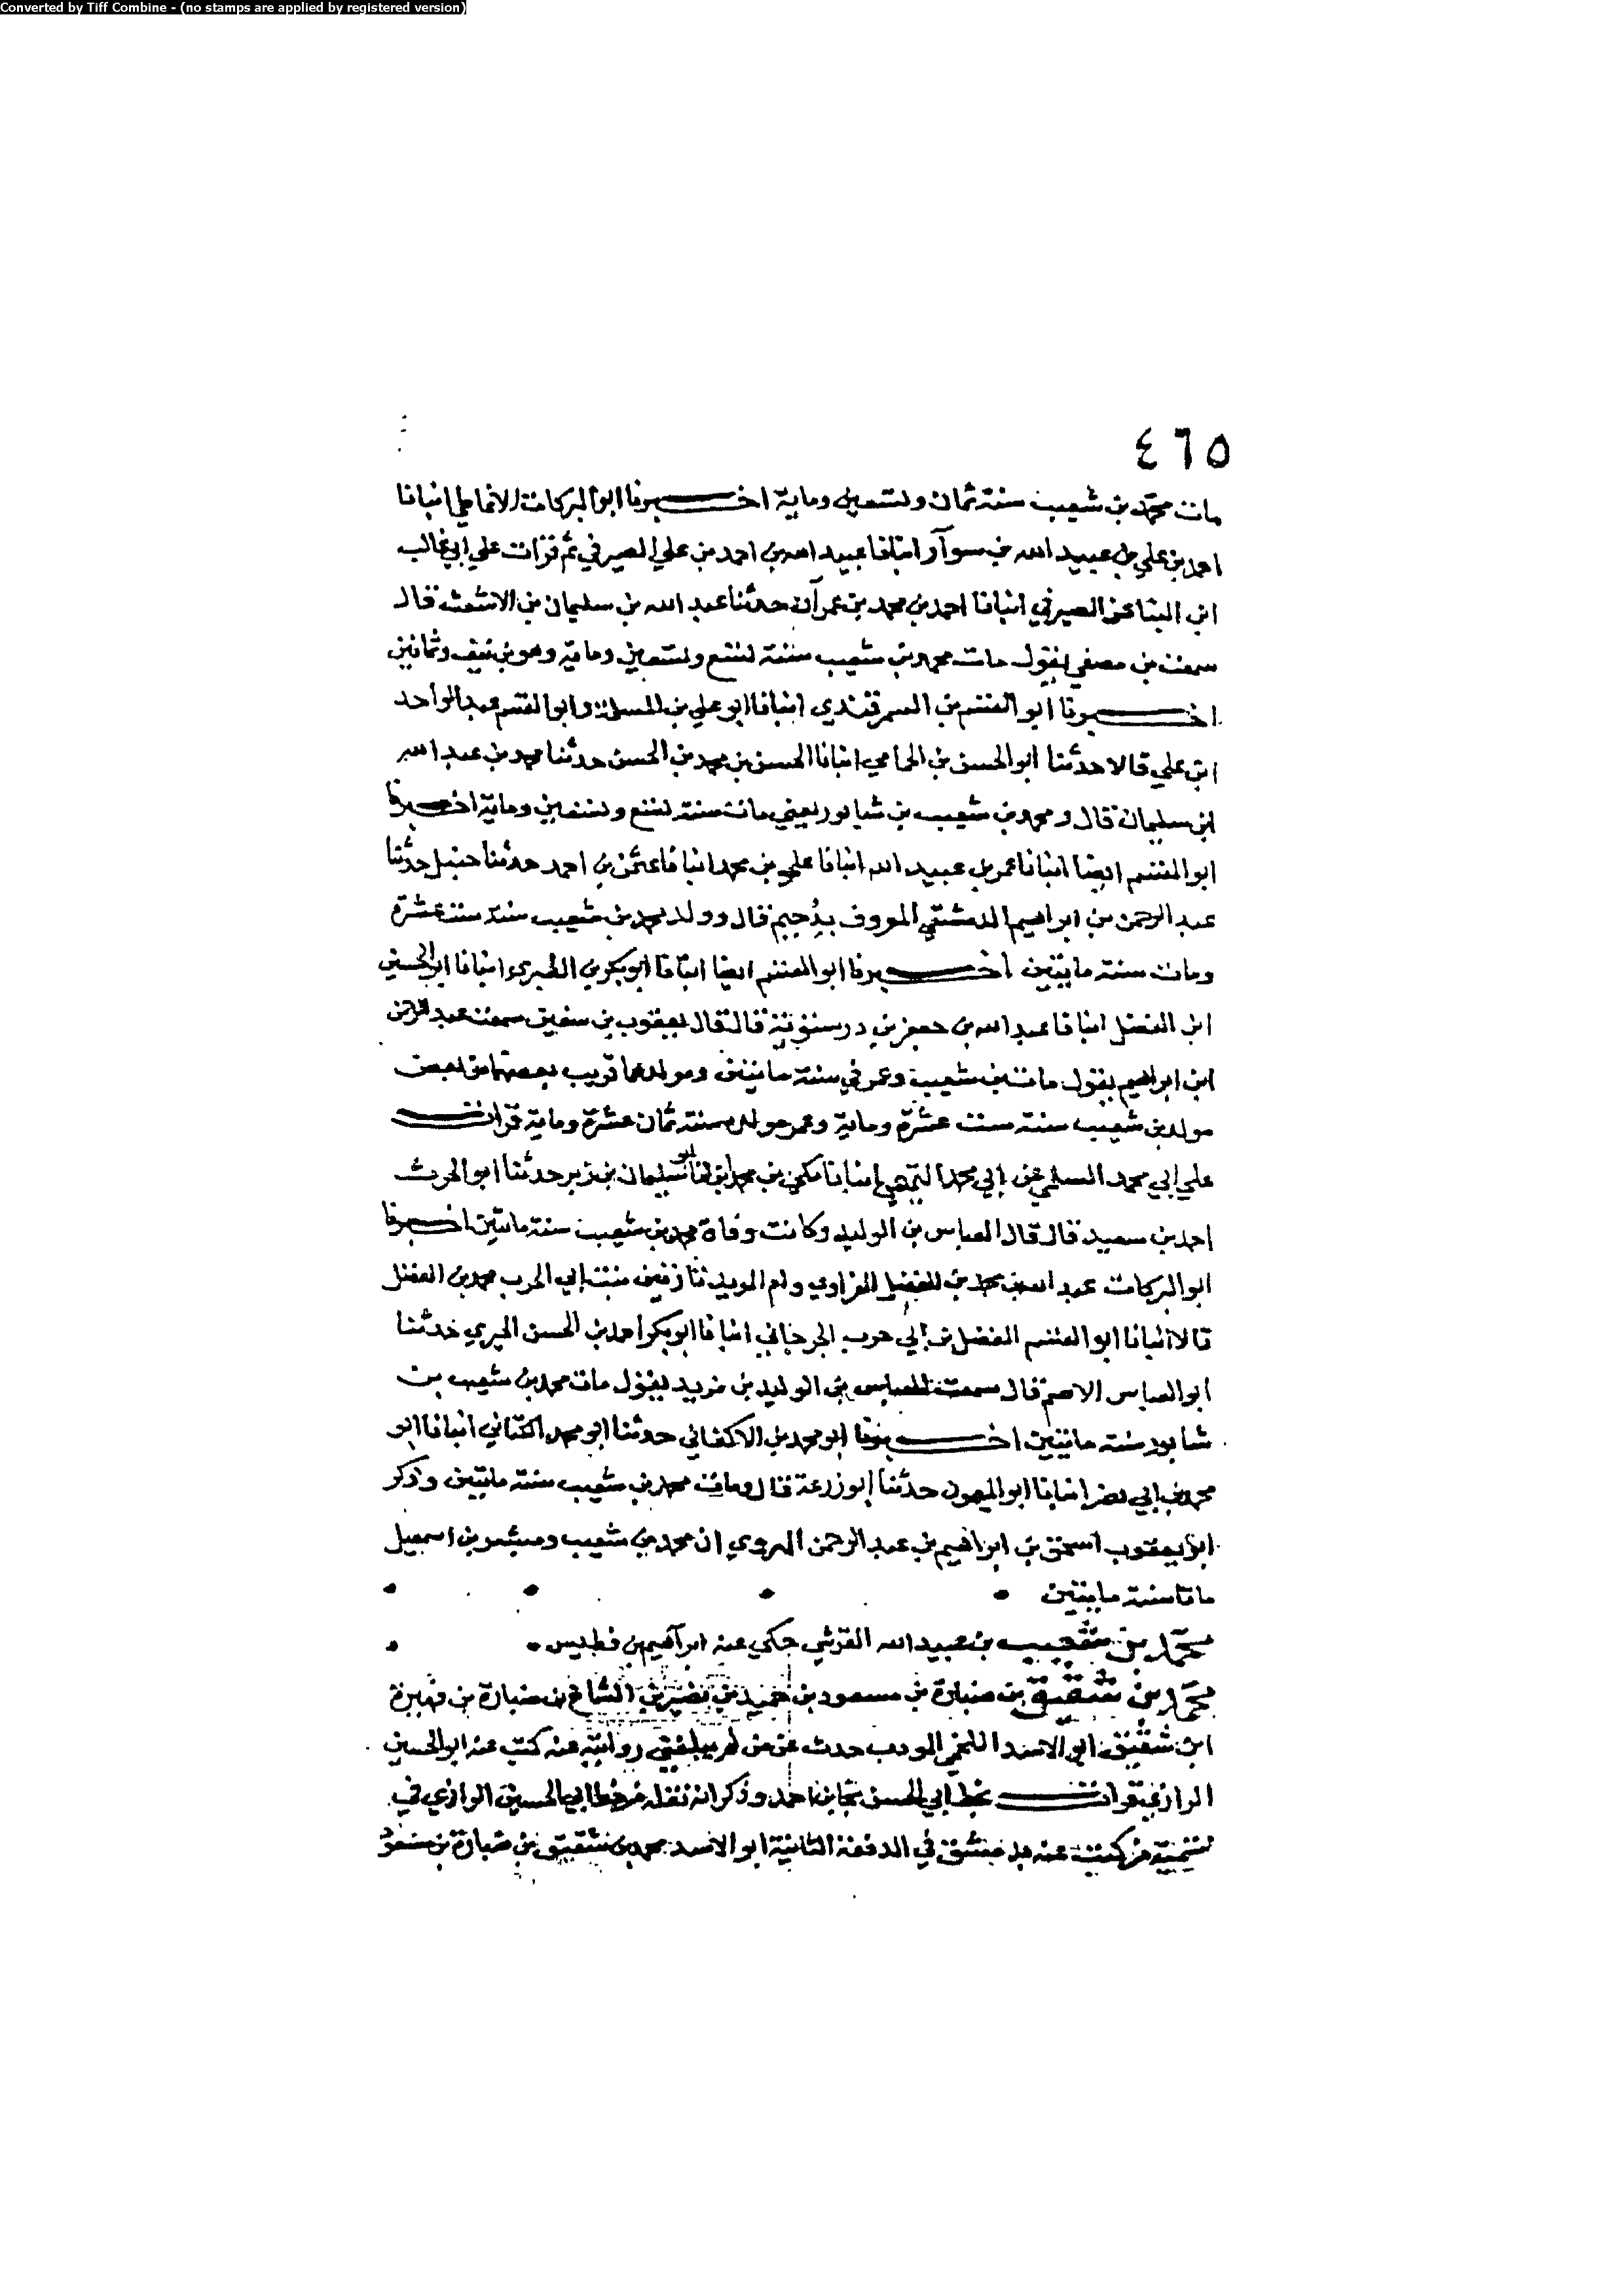 Converted by Tiff Combine - (no stamps are applied by registered version)
٤٦٥
مات محمد بن شعيب سنة ثمان وتسعين وماية اخبرنا ابو البركات الانماطي انبانا
احمد بن علي بن عبيد الله بن سوار انبانا عبيد الله بن احمد بن علي الصيرفي ثم قرات علي ابي غالب
ابن البنا عن الصيرفي انبانا احمد بن محمد بن عمران حدثنا عبد الله بن سليمان بن الاشعث قال
سمعت بن مصفي يقول مات محمد بن شعيب سنة تسع وتسعين وماية وهو بن نيف وثمانين
اخبرنا ابو القسم بن السمرقندي انبانا ابو علي بن المسلمة وابو القسم عبد الواحد
ابن علي قالا حدثنا ابو الحسن بن الحمامي انبانا الحسن بن محمد بن الحسن حدثنا محمد بن عبد الله
ابن سليمان قال ومحمد بن شعيب بن شابور يعني مات سنة تسع وتسعين وماية اخبرنا
ابو القسم ايضا انبانا عمر بن عبيد الله انبانا علي بن محمد انبانا عثمن بن احمد حدثنا حنبل حدثنا
عبد الرحمن بن ابراهيم الدمشقي المعروف بدحيم قال وولد محمد بن شعيب سنة ست عشرة
ومات سنة مايتين اخبرنا ابو القسم ايضا انبانا ابو بكر بن الطبري انبانا ابو الحسين
ابن الفضل انبانا عبد الله بن جعفر بن درستويه قال قال يعقوب بن سفين سمعت عبد الرحمن
ابن ابراهيم يقول مات بن شعيب وعمر في سنة مايتين ومولدهما قريب بعضهما من بعض
مولد بن شعيب سنة ست عشرة وماية وعمر مولده سنة ثمان عشرة وماية قرات
علي ابي محمد السلمي عن ابي محمد التميمي انبانا مكي بن محمد انبانا ابو سليمان بن زبر حدثنا ابو الحرث
احمد بن سعيد قال قال العباس بن الوليد وكانت وفاة محمد بن شعيب سنة مايتين اخبرنا
ابو البركات عبد الله بن محمد بن الفضل الفراوي وام المويد نازنين بنت ابي الحرب محمد بن الفضل
قالا انبانا ابو القسم الفضل بن ابي حرب الجرجاني انبانا ابو بكر احمد بن الحسن الحيري حدثنا
ابو العباس الاصم قال سمعت العباس بن الوليد بن مزيد يقول مات محمد بن شعيب بن
شابور سنة مايتين اخبرنا ابو محمد بن الاكفاني حدثنا ابو محمد الكتاني انبانا ابو
محمد بن ابي نصر انبانا ابو الميمون حدثنا ابو زرعة قال ومات محمد بن شعيب سنة مايتين وذكر
ابو يعقوب اسحق بن ابراهيم بن عبد الرحمن الهروي ان محمد بن شعيب ومبشر بن اسمعيل
ماتا سنة مايتين
محمد بن شعيب بن عبيد الله القرشي حكي عنه ابراهيم بن فطيس
محمد بن شقيق بن ضبارة بن مسعود بن حميد بن نضير بن الشاخ بن ضبارة بن فهيرة
ابن شقيق ابو الاسد اللخمي المودب حدث عن من لم يبلغني روايته عنه كتب عنه ابو الحسين
الرازي قرات بخط ابي الحسن نجا بن احمد وذكر انه نقله من خط ابي الحسين الرازي في
تسمية من كتب عنه بدمشق في الدفعة الثانية ابو الاسد محمد بن شقيق بن ضبارة بن مسعود